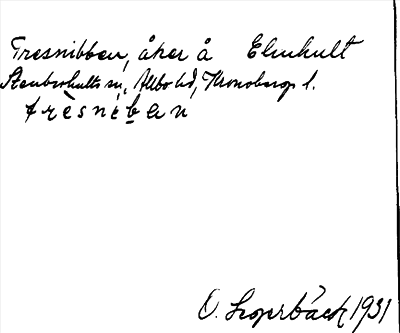 Tresnibben, åker å Elmhult
Stenbrohults sn, Allbo hd, Kronobergs l.
trèsnìban
O. Lagerbäck 1931